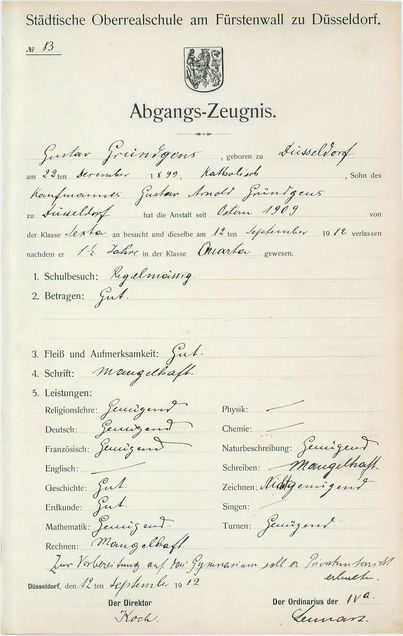 Städtische Oberrealschule am Fürstenwall zu Düsseldorf.
№ 83
Abgangs-Zeugnis.
Gustav Gründgens, geboren zu Düsseldorf
am 22ten Dezember 1899, Katholisch, Sohn des
Kaufmannes Gustav Arnold Gründgens
zu Düsseldorf hat die Anstalt seit Ostern 1909 von
der Klasse Sexta an besucht und dieselbe am 12ten September 1912 verlassen
nachdem er 1½ Jahre in der Klasse Quarta gewesen.
1. Schulbesuch: Regelmässig
2. Betragen: Gut.
3. Fleiß und Aufmerksamkeit: Gut.
4. Schrift: Mangelhaft.
5. Leistungen:
Religionslehre: Genügend Physik: —
Deutsch: Genügend Chemie: —
Französisch: Genügend Naturbeschreibung: Genügend
Englisch: — Schreiben: Mangelhaft.
Geschichte: Gut Zeichnen: Nichtgenügend
Erdkunde: Gut. Singen: —
Mathematik: Genügend Turnen: Genügend
Rechnen: Mangelhaft.
Zur Vorbereitung auf das Gymnasium soll er Privatunterricht
erhalten.
Düsseldorf, den 12ten September 1912
Der Direktor Der Ordinarius der IVa.
Koch.